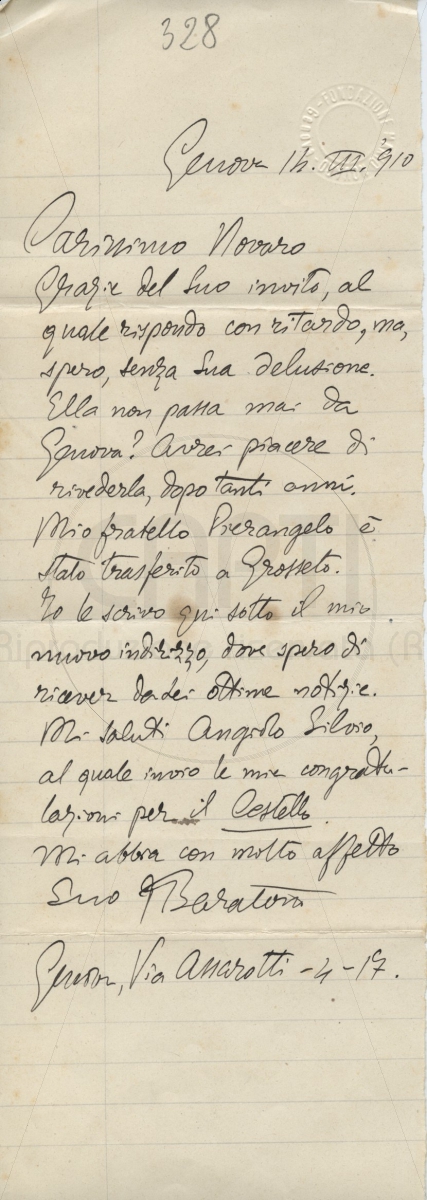 328
Genova 14. III. 910
Carissimo Novaro
Grazie del Suo invito, al
quale rispondo con ritardo, ma,
spero, senza Sua delusione.
Ella non passa mai da
Genova? Avrei piacere di
rivederla, dopo tanti anni.
Mio fratello Pierangelo è
stato trasferito a Grosseto.
Io le scrivo qui sotto il mio
nuovo indirizzo, dove spero di
ricever da Lei ottime notizie.
Mi saluti Angiolo Silvio,
al quale invio le mie congratu-
lazioni per il Cestello.
Mi abbia con molto affetto
Suo Baratono
Genova, Via Assarotti - 4 - 17.